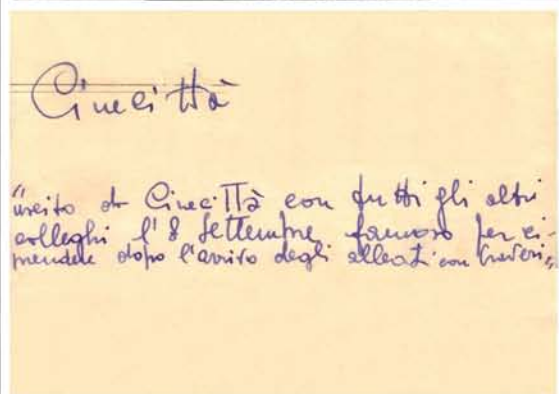 Cinecittà
"uscito da CineciTTà con tutti gli altri
colleghi l'8 settembre famoso per ri-
prendere dopo l'arrivo degli alleati con